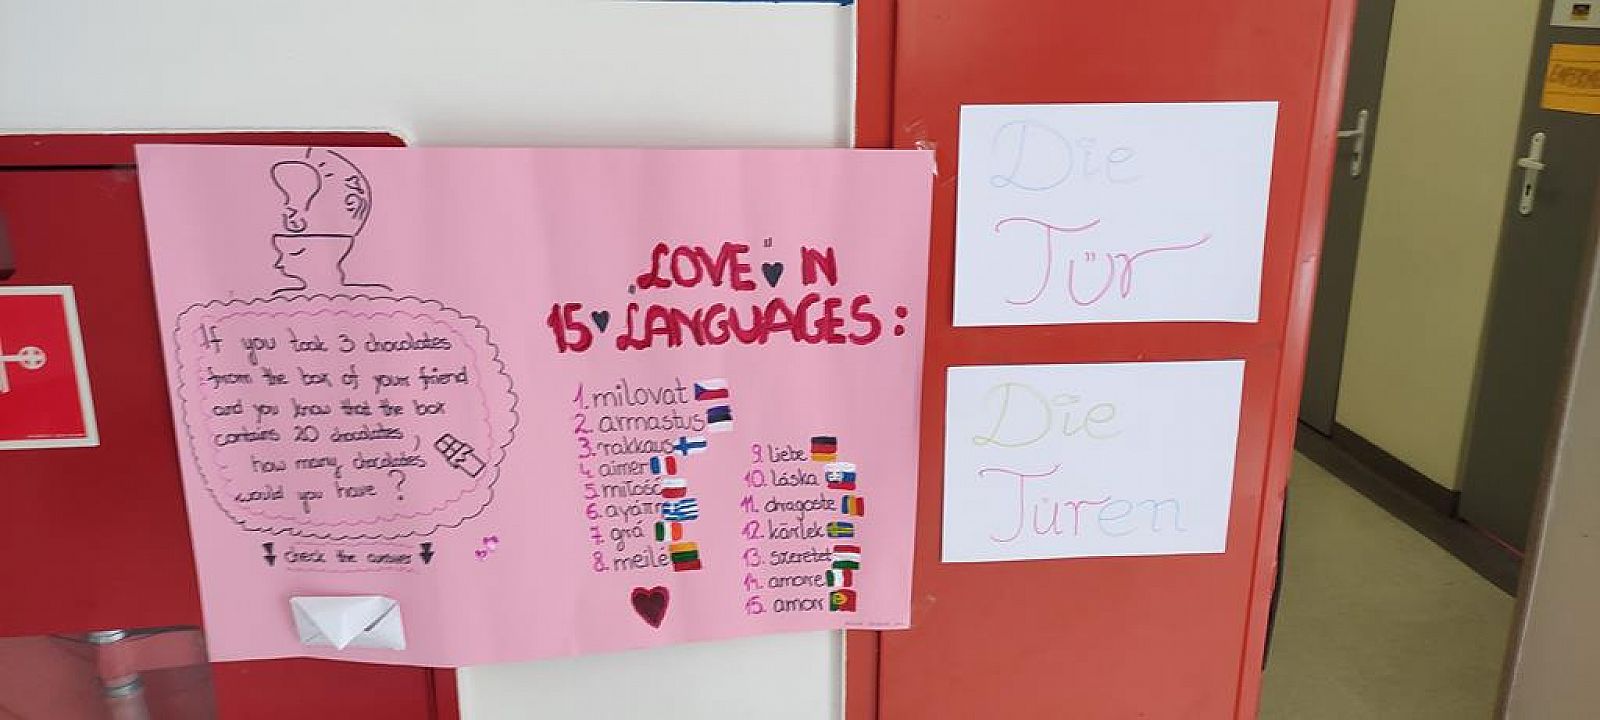 If you took 3 chocolates
from the box of your friend
and you know that the box
contains 20 chocolates,
how many chocolates
would you have?
check the answer
LOVE IN
15 LANGUAGES:
1. milovat
2. armastus
3. rakkaus
4. aimer
5. miłość
6. αγάπη
7. grá
8. meilė
9. liebe
10. láska
11. dragoste
12. kärlek
13. szeretet
14. amore
15. amor
Die
Tür
Die
Türen